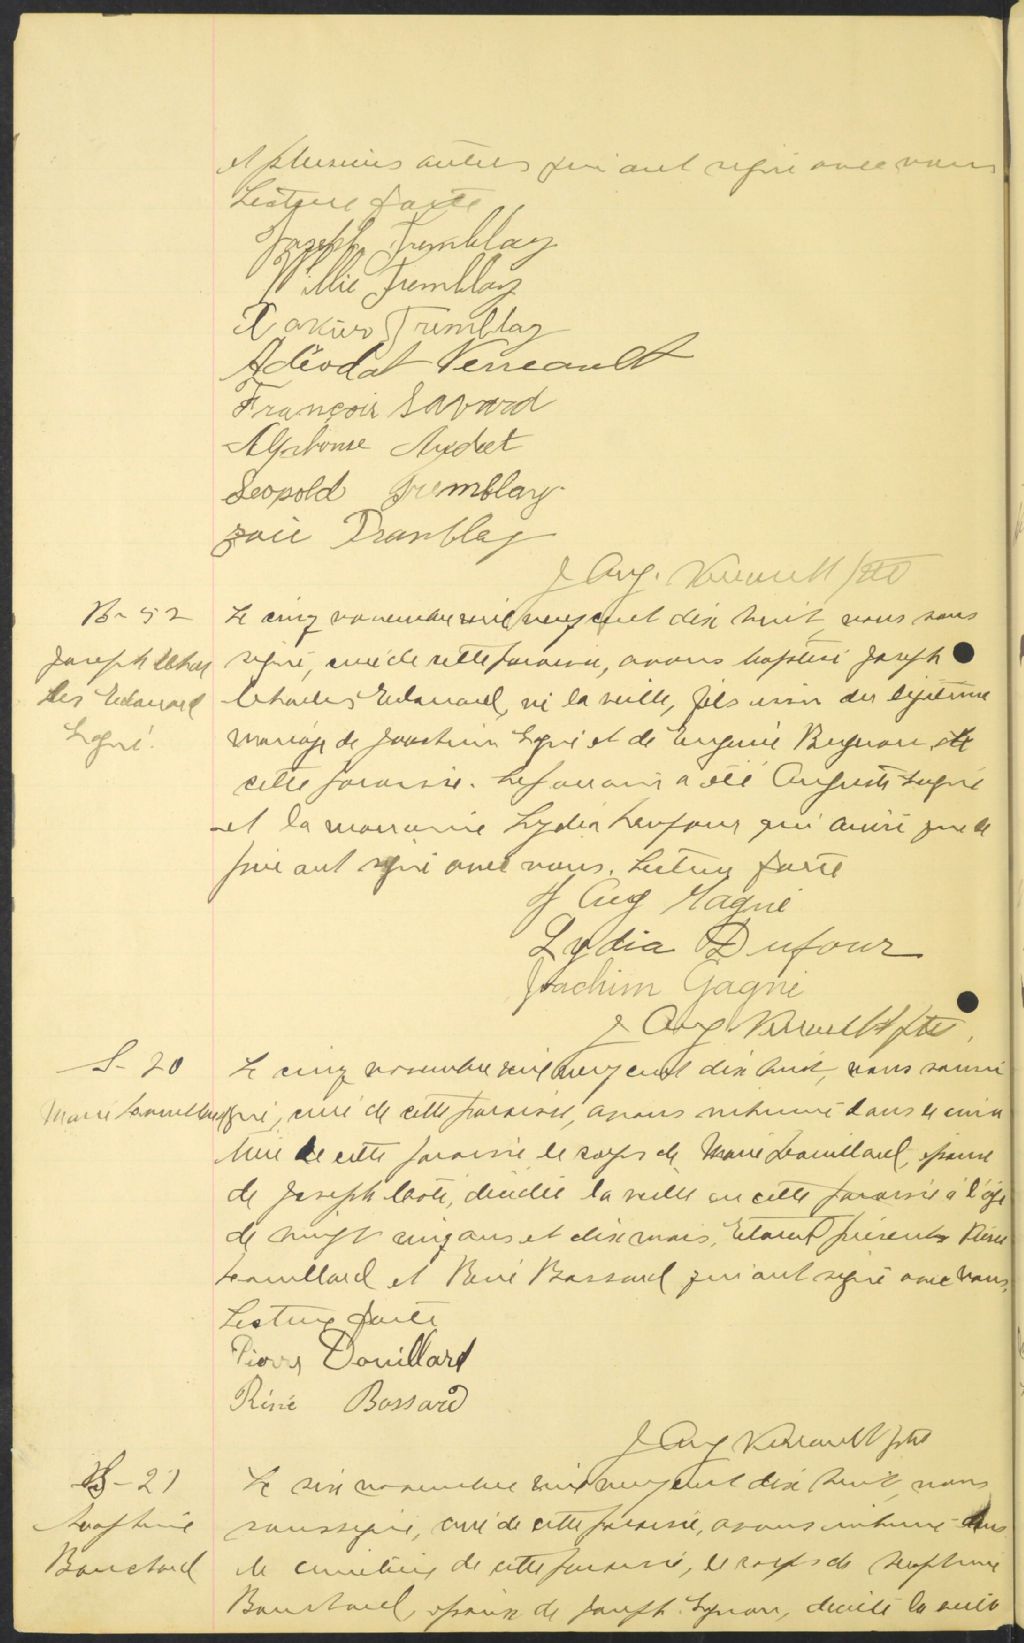 et plusieurs autres qui ont signé avec nous
Lecture faite
Joseph Tremblay
Willie Tremblay
Tremblay
Adéodat Verreault
François Savard
Alphonse Audet
Leopold Tremblay
Tramblay
J Aug. Verreault ptre
B-52
Joseph Char
les Edouard
Gagné.
Le cinq novembre mil neuf cent dix huit, nous sous
signé, curé de cette paroisse, avons baptisé Joseph
Charles Edouard, né la veille, fils issu du légitime
mariage de Joachim Gagné et de Eugénie de
cette paroisse. Le parrain a été Auguste Gagné
et la marraine Lydia Dufour qui ainsi que le
père ont signé avec nous. Lecture faite
J Aug Gagné
Lydia Dufour
Joachim Gagné
J Aug Verreault ptre,
S-20
Marie Douillard
Le cinq novembre mil neuf cent dix huit, nous soussi
gné, curé de cette paroisse, avons inhumé dans le cime
tière de cette paroisse le corps de Marie Douillard, épouse
de Joseph Coté, décédée la veille en cette paroisse à l'âge
de vingt cinq ans et dix mois. Etaient présents Pierre
Douillard et René Bossard qui ont signé avec nous.
Lecture faite
Pierre Douillard
Réné Bossard
J Aug Verreault ptre
S-21
Séraphine
Bouchard
Le six novembre mil neuf cent dix huit, nous
soussigné, curé de cette paroisse, avons inhumé dans
le cimetière de cette paroisse, le corps de Séraphine
Bouchard, épouse de Joseph, décédée la veille